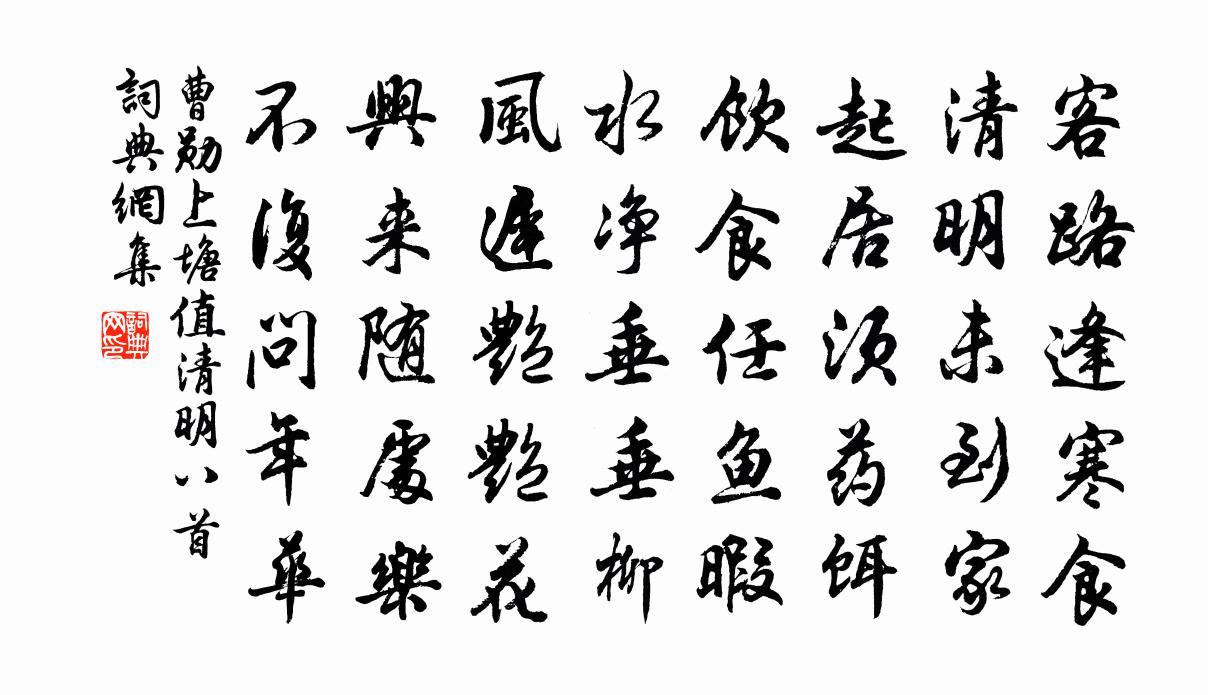 客路逢寒食
清明未到家
起居須药餌
飲食任魚暇
水净垂垂柳
風遲艷艷花
興来随處樂
不復问年華
曹勛上塘值清明八首
詞典網集
詞典
网印